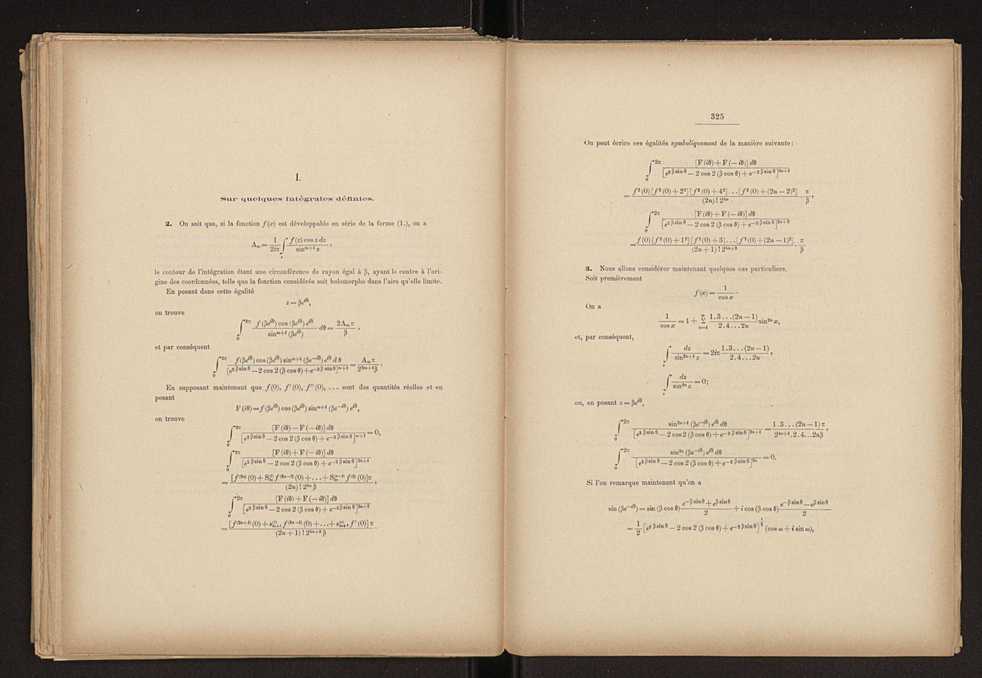 I.
Sur quelques intégrales définies.
2. On sait que, si la fonction f(x) est développable en série de la forme (1.), on a
Aₙ = 1/2iπ ∫_c f(z) cos z dz / sinⁿ⁺¹ z,
le contour de l'intégration étant une circonférence de rayon égal à β, ayant le centre à l'ori-
gine des coordonnées, telle que la fonction considérée soit holomorphe dans l'aire qu'elle limite.
En posant dans cette égalité
z = βe^{iθ},
on trouve
∫_0^{2π} f(βe^{iθ}) cos(βe^{iθ}) e^{iθ} / sin^{n+1}(βe^{iθ}) dθ = 2Aₙπ / β,
et par conséquent
∫_0^{2π} f(βe^{iθ}) cos(βe^{iθ}) sin^{n+1}(βe^{-iθ}) e^{iθ} dθ / [e^{2β sin θ} − 2 cos 2(β cos θ) + e^{-2β sin θ}]^{n+1} = Aₙπ / 2^{2n+1}β.
En supposant maintenant que f(0), f'(0), f''(0), ... sont des quantités réelles et en
posant
F(iθ) = f(βe^{iθ}) cos(βe^{iθ}) sin^{n+1}(βe^{-iθ}) e^{iθ},
on trouve
∫_0^{2π} [F(iθ) − F(−iθ)] dθ / [e^{2β sin θ} − 2 cos 2(β cos θ) + e^{-2β sin θ}]^{n+1} = 0,
∫_0^{2π} [F(iθ) + F(−iθ)] dθ / [e^{2β sin θ} − 2 cos 2(β cos θ) + e^{-2β sin θ}]^{2n+1}
= [f^{(2n)}(0) + f^{(2n−2)}(0) + ... + f''(0)] π / (2n)! 2^{4n} β
∫_0^{2π} [F(iθ) + F(−iθ)] dθ / [e^{2β sin θ} − 2 cos 2(β cos θ) + e^{-2β sin θ}]^{2n+2}
= [f^{(2n+1)}(0) + f^{(2n−1)}(0) + ... + f'(0)] π / (2n+1)! 2^{4n+2} β
325
On peut écrire ces égalités symboliquement de la manière suivante:
∫_0^{2π} [F(iθ) + F(−iθ)] dθ / [e^{2β sin θ} − 2 cos 2(β cos θ) + e^{-2β sin θ}]^{2n+1}
= f²(0)[f²(0) + 2²][f²(0) + 4²]...[f²(0) + (2n−2)²] / (2n)! 2^{4n} · π/β,
∫_0^{2π} [F(iθ) + F(−iθ)] dθ / [e^{2β sin θ} − 2 cos 2(β cos θ) + e^{-2β sin θ}]^{2n+2}
= f(0)[f²(0) + 1²][f²(0) + 3]...[f²(0) + (2n−1)²] / (2n+1)! 2^{4n+2} · π/β
3. Nous allons considérer maintenant quelques cas particuliers.
Soit premièrement
f(x) = 1/cos x.
On a
1/cos x = 1 + Σ_{n=1}^{∞} 1.3...(2n−1) / 2.4...2n sin^{2n} x,
et, par conséquent,
∫_c dz / sin^{2n+1} z = 2iπ 1.3...(2n−1) / 2.4...2n,
∫_c dz / sin^{2n} z = 0;
ou, en posant z = βe^{iθ},
∫_0^{2π} sin^{2n+1}(βe^{-iθ}) e^{iθ} dθ / [e^{2β sin θ} − 2 cos 2(β cos θ) + e^{-2β sin θ}]^{2n+1} = 1.3...(2n−1) π / 2^{4n+1}.2.4...2nβ,
∫_0^{2π} sin^{2n}(βe^{-iθ}) e^{iθ} dθ / [e^{2β sin θ} − 2 cos 2(β cos θ) + e^{-2β sin θ}]^{2n} = 0.
Si l'on remarque maintenant qu'on a
sin(βe^{-iθ}) = sin(β cos θ) e^{-β sin θ} + e^{β sin θ} / 2 + i cos(β cos θ) e^{-β sin θ} − e^{β sin θ} / 2
= 1/2 [e^{2β sin θ} − 2 cos 2(β cos θ) + e^{-2β sin θ}]^{1/2} (cos ω + i sin ω),